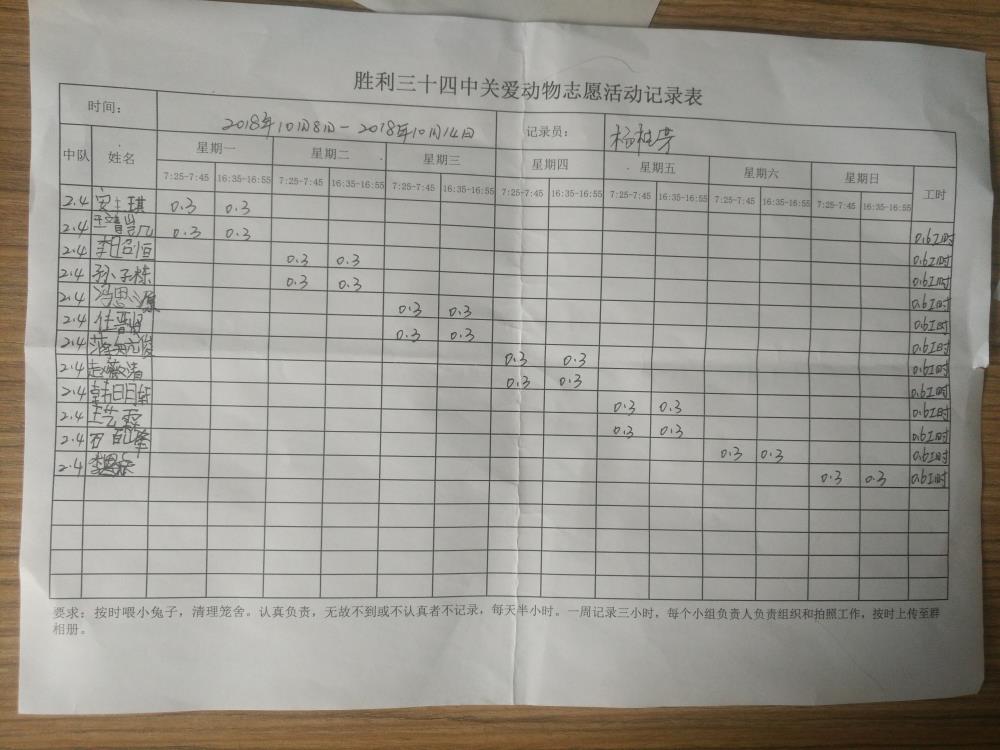 胜利三十四中关爱动物志愿活动记录表
时间: 2018年10月8日-2018年10月14日 记录员: 杨桂芳
中队 姓名 星期一 星期二 星期三 星期四 星期五 星期六 星期日 工时
7:25-7:45 16:35-16:55 7:25-7:45 16:35-16:55 7:25-7:45 16:35-16:55 7:25-7:45 16:35-16:55 7:25-7:45 16:35-16:55 7:25-7:45 16:35-16:55 7:25-7:45 16:35-16:55
2.4 0.3 0.3 0.6工时
2.4 0.3 0.3 0.6工时
2.4 0.3 0.3 0.6工时
2.4 孙子栋 0.3 0.3 0.6工时
2.4 冯思源 0.3 0.3 0.6工时
2.4 0.3 0.3 0.6工时
2.4 0.3 0.3 0.6工时
2.4 0.3 0.3 0.6工时
2.4 0.3 0.3 0.6工时
2.4 王艺霖 0.3 0.3 0.6工时
2.4 0.3 0.3 0.6工时
2.4 0.3 0.3 0.6工时
要求：按时喂小兔子，清理笼舍。认真负责，无故不到或不认真者不记录，每天半小时。一周记录三小时，每个小组负责人负责组织和拍照工作，按时上传至群
相册。